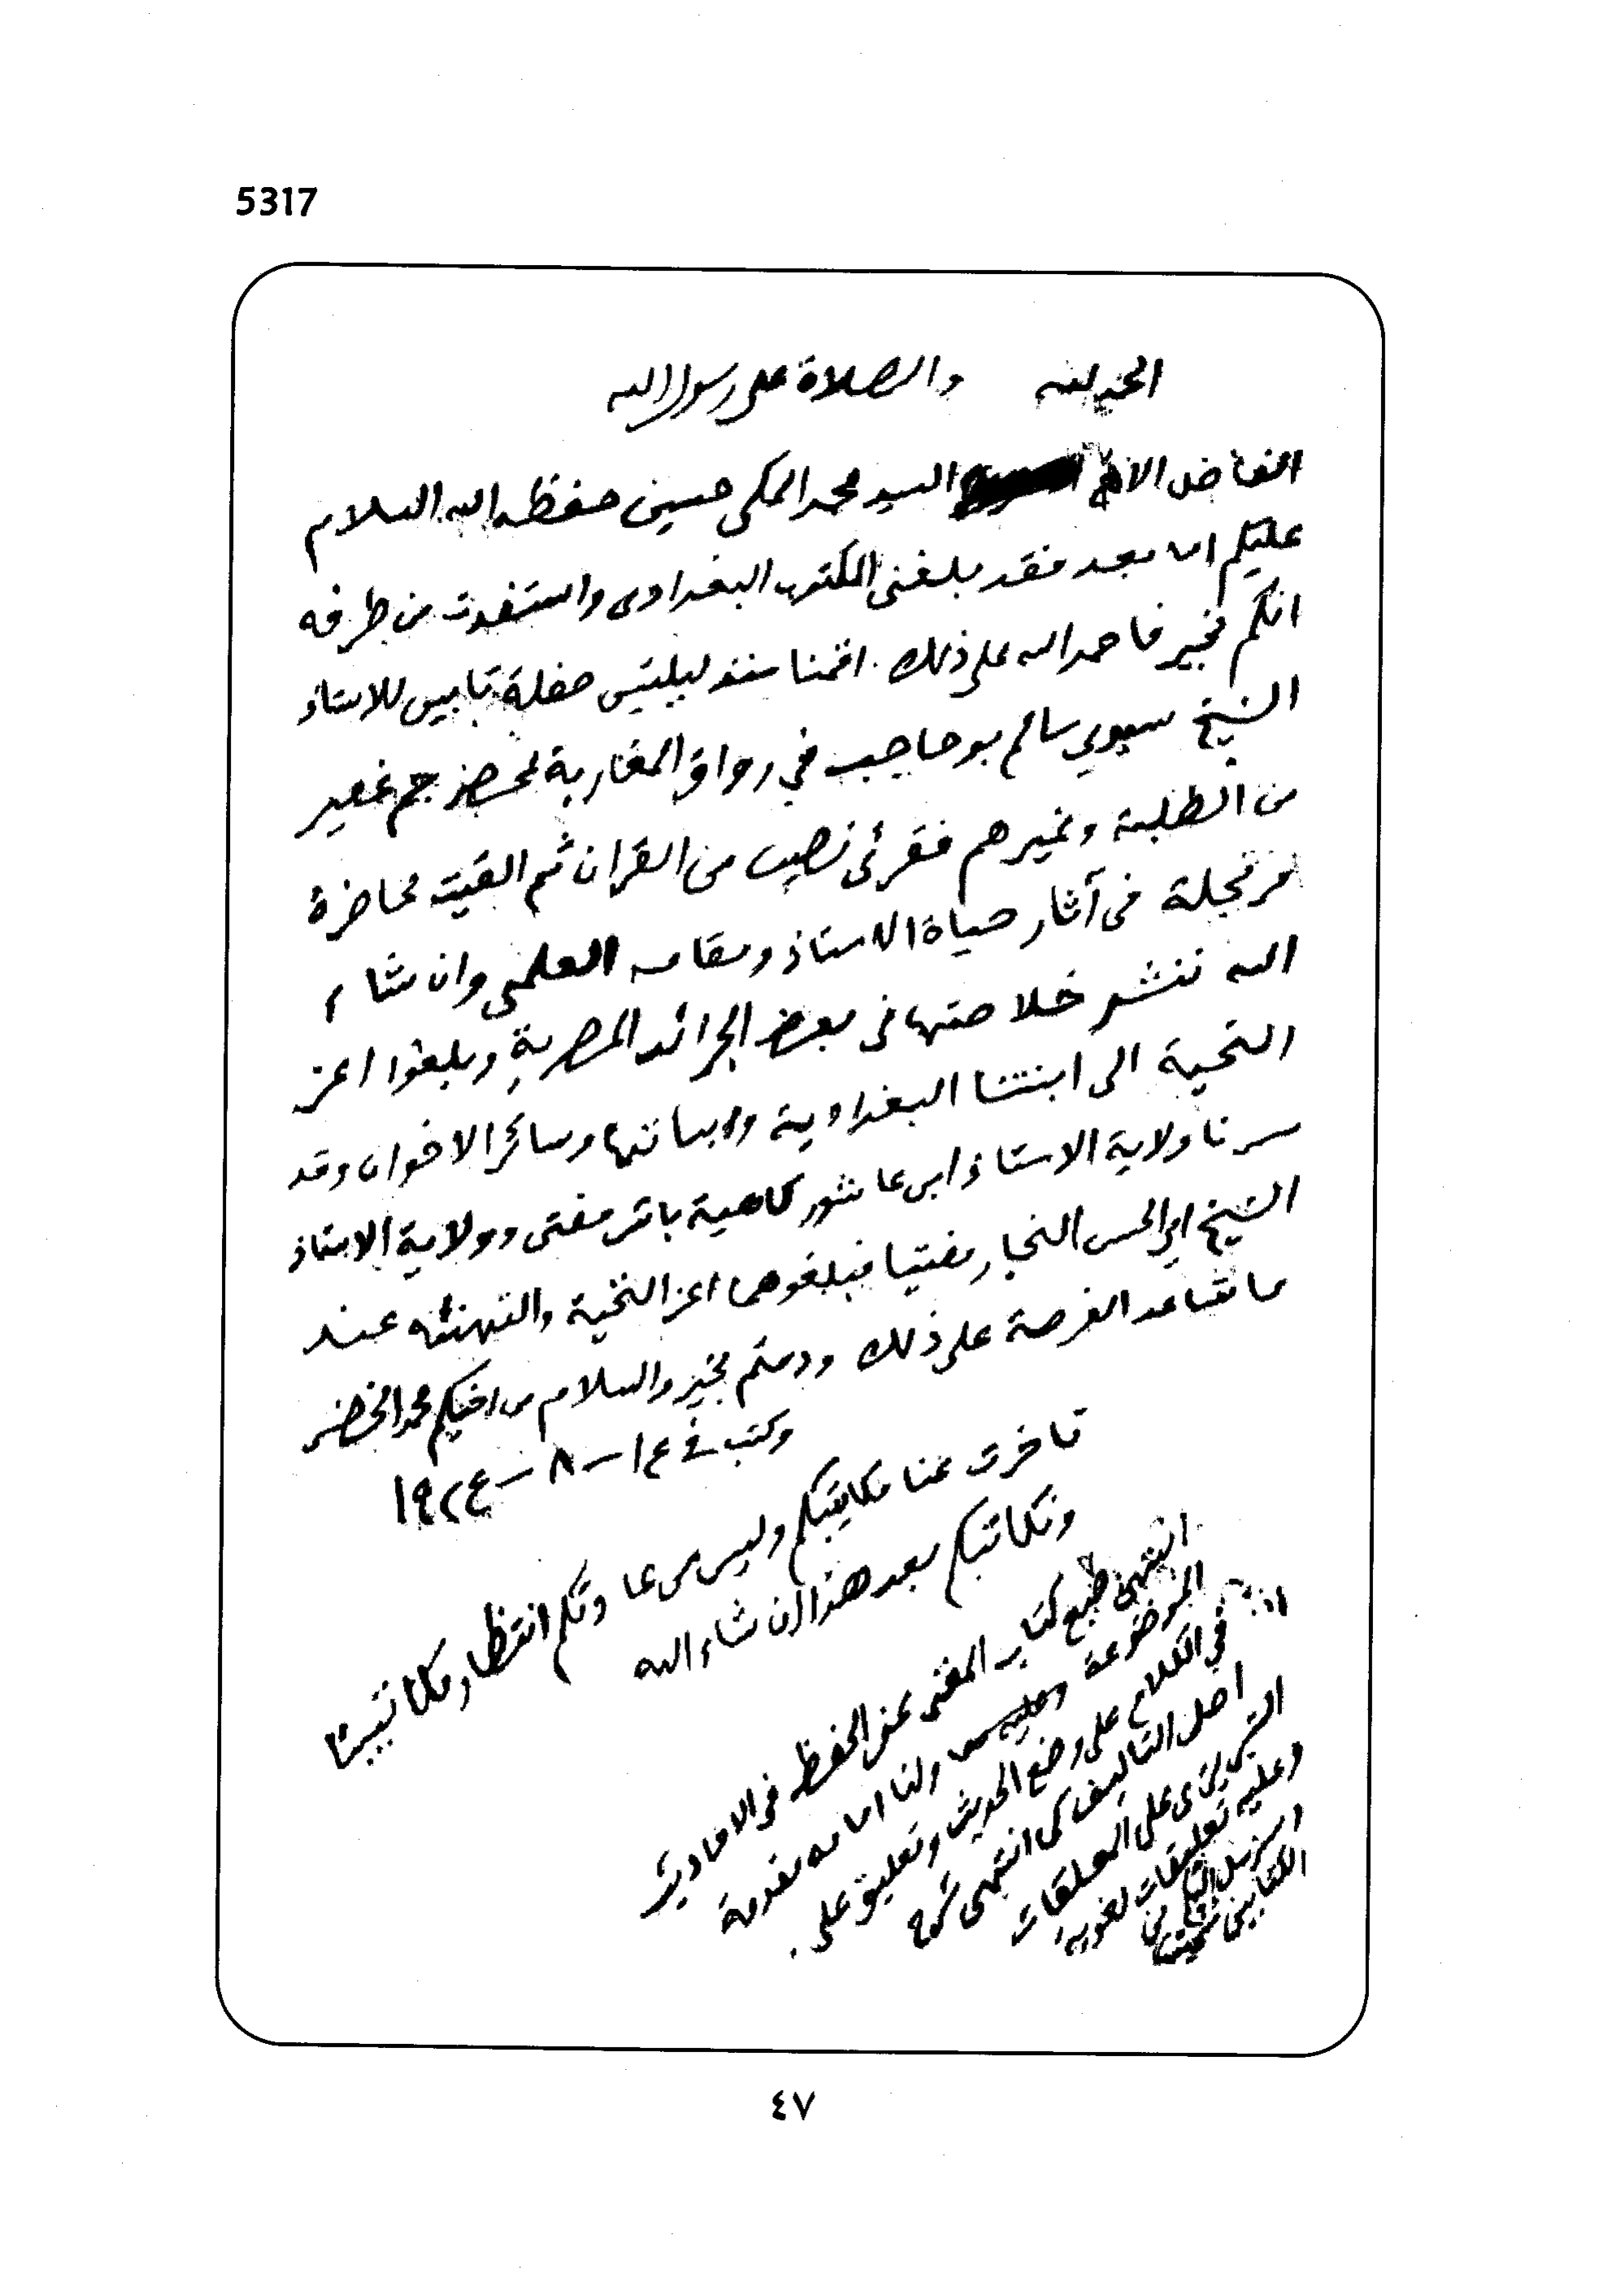 5317
الحمد لله والصلاة على رسول الله
الفاضل الاخ السيد محمد المكي حسين حفظه الله السلام
عليكم اما بعد فقد بلغني المكتوب البغدادي واستفدت من طرفه
انكم بخير فاحمد الله على ذلك. اقمنا منذ ليلتين حفلة تابين للاستاذ
الشيخ سيدي سالم بوحاجب في رواق المغاربة بمحضر جم غفير
من الطلبة وغيرهم فقرئ نصيب من القران ثم القيت محاضرة
مرتجلة في آثار حياة الاستاذ ومقامه العلمي وان شاء
الله ننشر خلاصتها في بعض الجرائد المصرية وبلغوا اعز
التحية الى ابنتنا البغدادية وسائر الاخوان وقد
سرنا ولاية الاستاذ ابن عاشور كاهية باش مفتي وولاية الاستاذ
الشيخ ابي الحسن النجار مفتيا فبلغوهما اعز التحية والتهنئه عند
ما تساعد الفرصة على ذلك ودمتم بخير والسلام من اخيكم محمد الخضر
وكتب في ١٤ - ٨ - ١٩٢٤
تاخرت عنا مكاتيبكم وليس من عادتكم انتظار مكاتيبنا
ونكاتبكم بعد هذا ان شاء الله
انتهى طبع كتاب المغني عن الحفظ في الاحاديث
الموضوعة ولنا امامه مقدمة
في الكلام على وضع الحديث وتعليق على
اصل التاليف كما انتهى شرح
التبريزي على المعلقات
وعليه تعليقات لغوية
الكتابين
٤٧